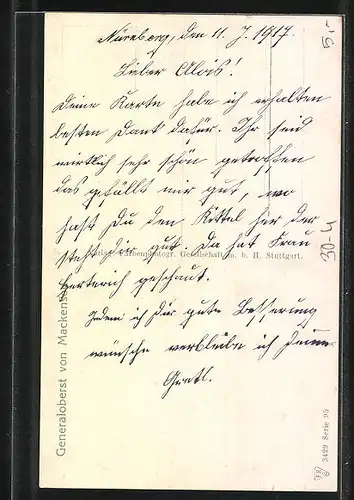 Nürnberg, den 11. J. 1917.
Lieber Alois!
Deine Karte habe ich erhalten
besten Dank dafür. Ihr seid
wirklich sehr schön getroffen
das gefällt mir gut, wo
hast Du den Kittel her der
steht Dir gut. Da hat Frau
Herterich geschaut.
Indem ich Dir gute Besserung
wünsche verbleibe ich Deine
Gretl.
Gesellschaft m. b. H. Stuttgart.
Generaloberst von Mackensen
3429 Serie 95
5,-
30.4